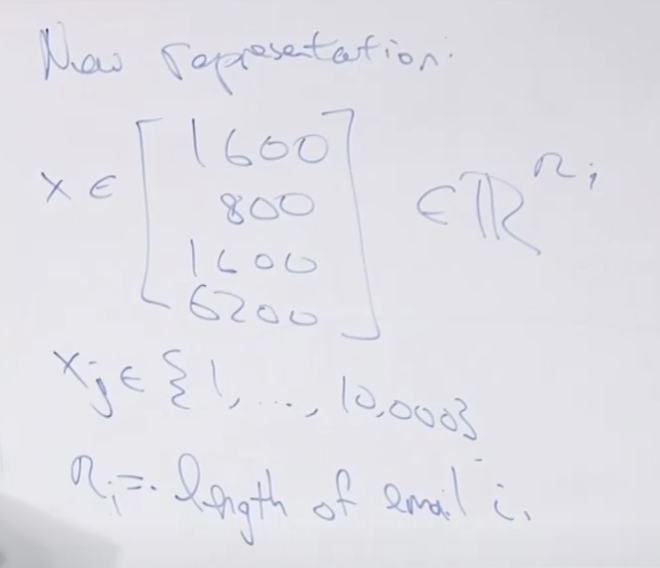 New representation:
x ∈ [1600
800
1600
6200] ∈ ℝ^{n_i}
x_j ∈ {1, ..., 10,000}
n_i = length of email i.